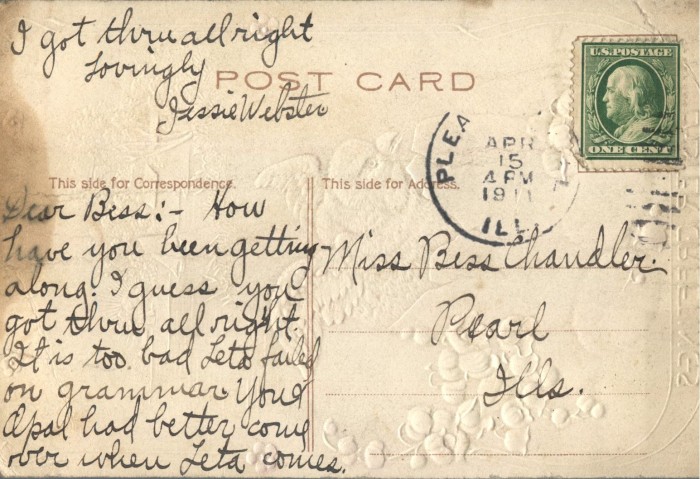 I got thru allright
Lovingly
Jessie Webster
POST CARD
U.S. POSTAGE
ONE CENT
PLEA
APR
15
4 PM
1911
ILL
This side for Correspondence.
This side for Address.
Dear Bess:- How
have you been getting
along. I guess you
got thru allright.
It is too bad Leta failed
on grammar You &
Opal had better come
over when Leta comes.
Miss Bess Chandler.
Pearl
Ills.